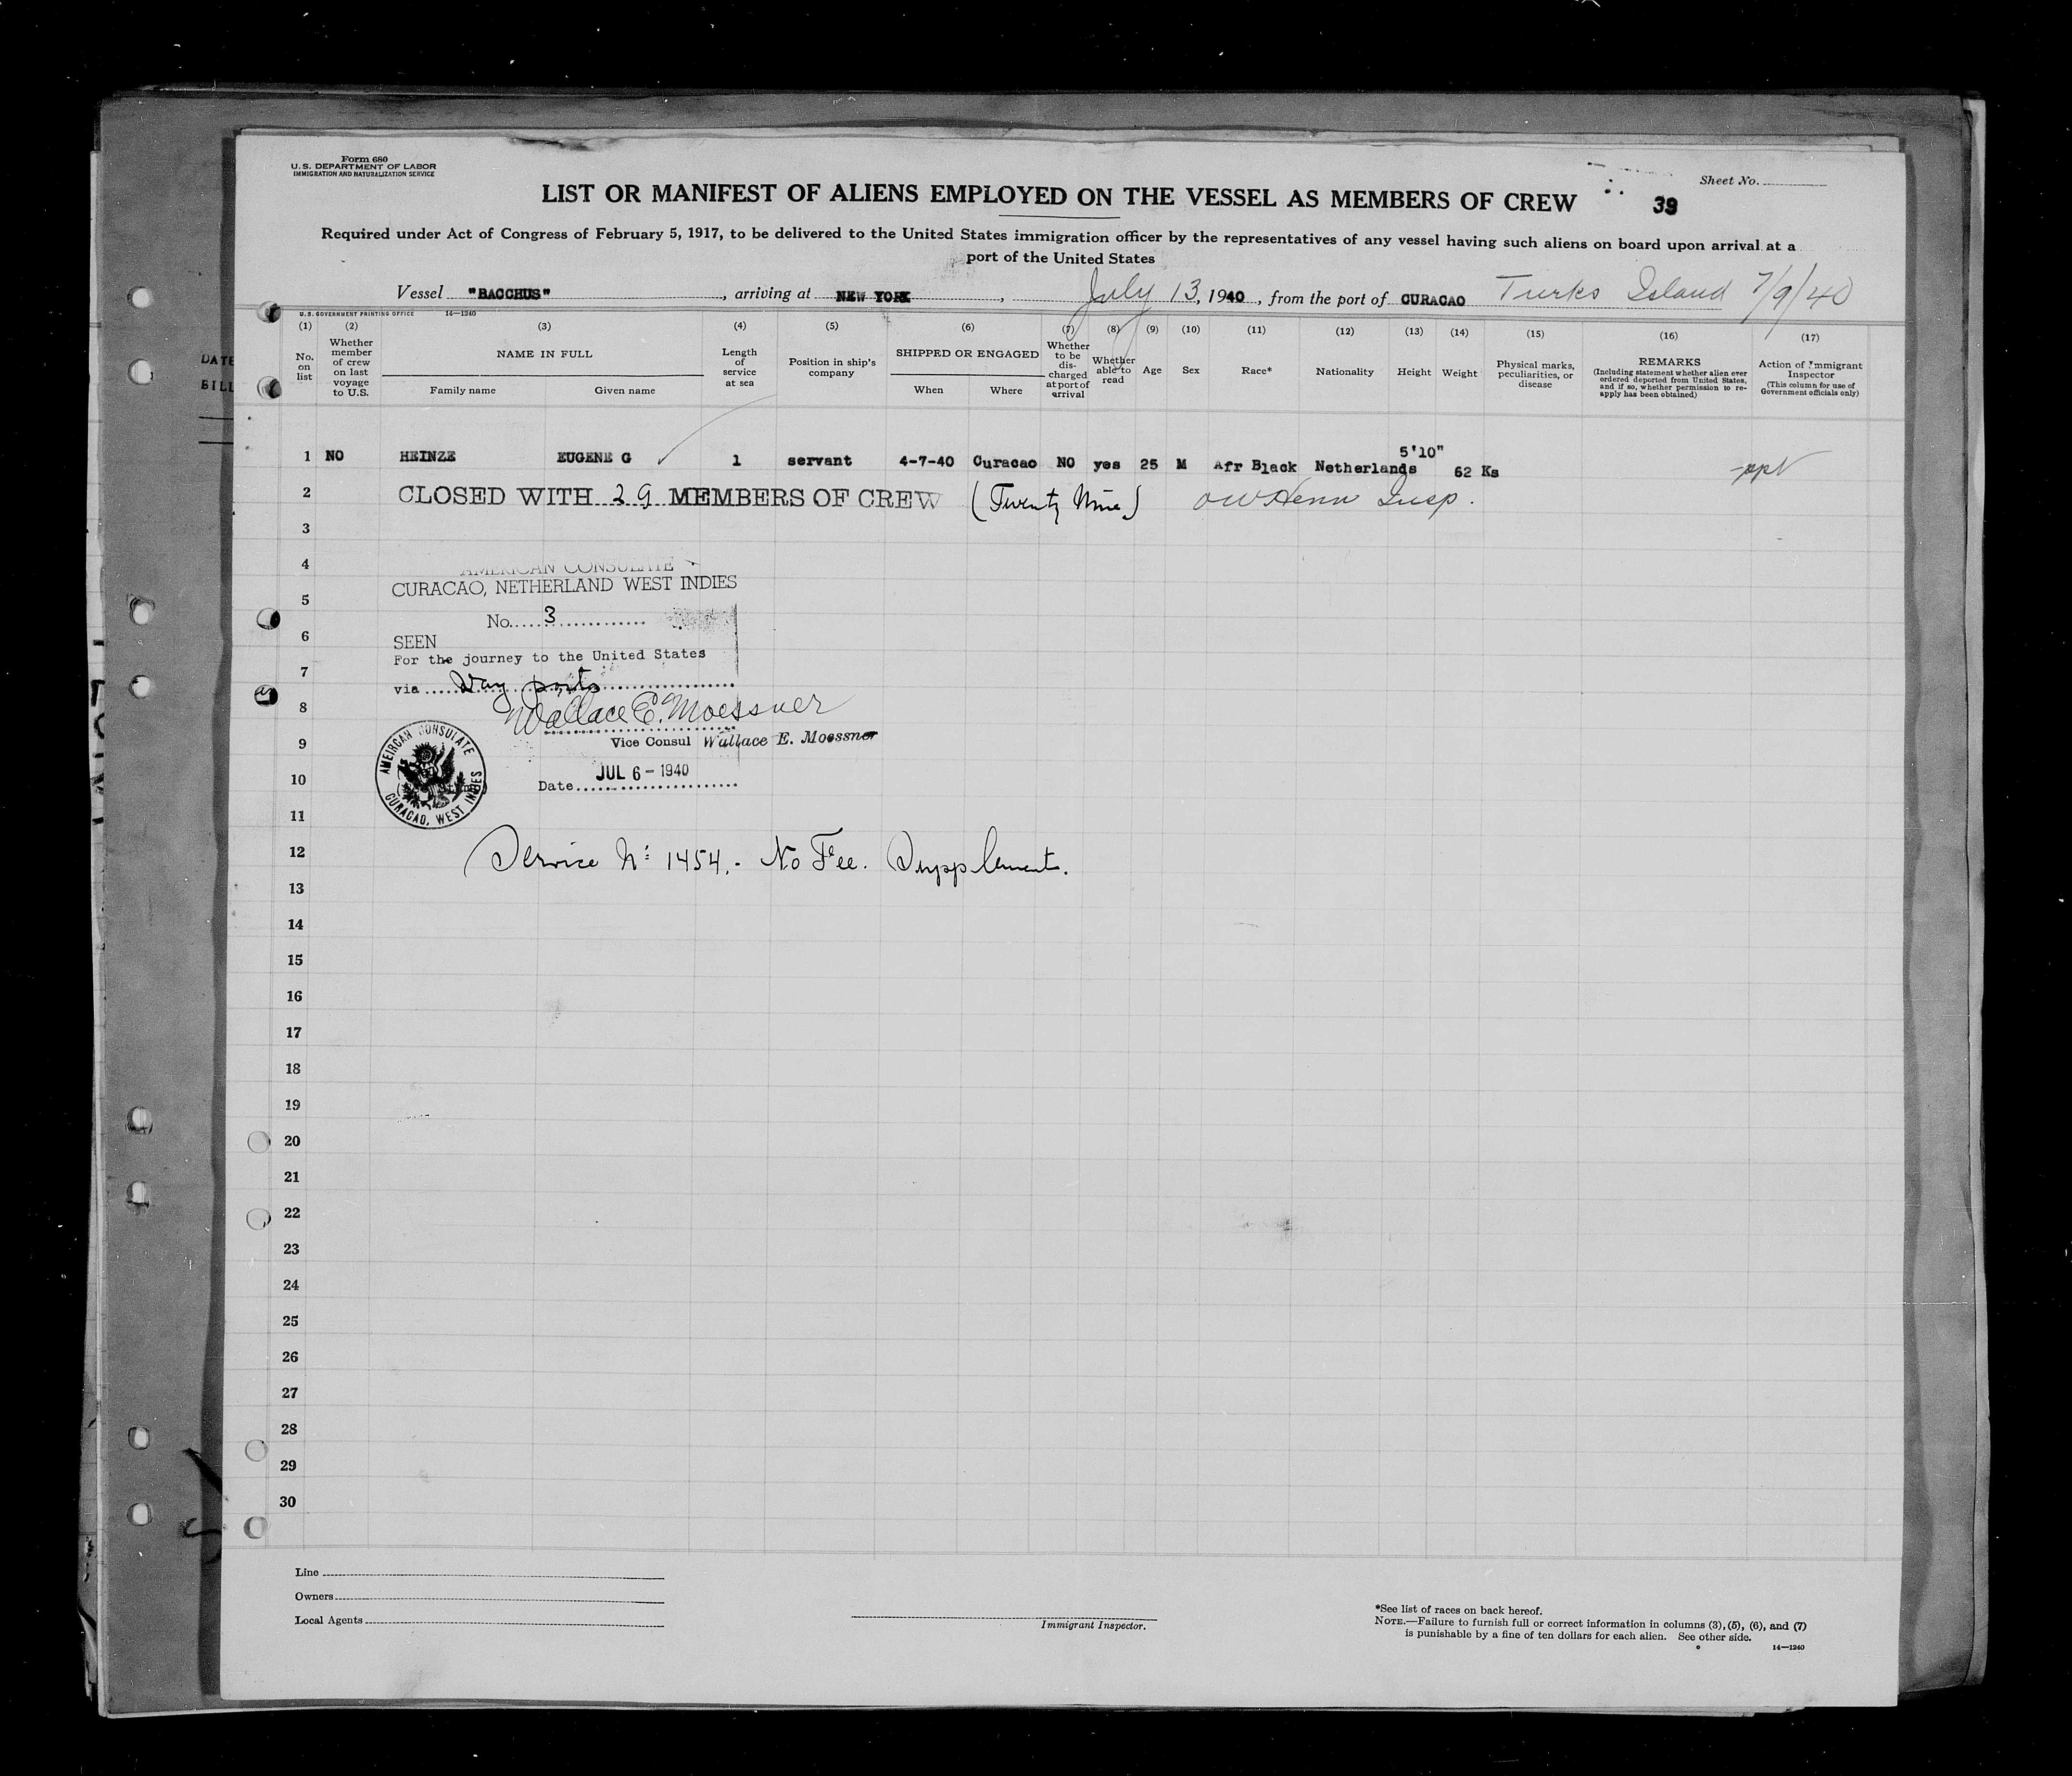 Form 680
U. S. DEPARTMENT OF LABOR
IMMIGRATION AND NATURALIZATION SERVICE
Sheet No.
LIST OR MANIFEST OF ALIENS EMPLOYED ON THE VESSEL AS MEMBERS OF CREW
39
Required under Act of Congress of February 5, 1917, to be delivered to the United States immigration officer by the representatives of any vessel having such aliens on board upon arrival at a
port of the United States
Vessel "BACCHUS", arriving at NEW YORK, July 13, 1940, from the port of CURACAO Turks Island 7/9/40
U. S. GOVERNMENT PRINTING OFFICE 14—1240
(1) (2) (3) (4) (5) (6) (7) (8) (9) (10) (11) (12) (13) (14) (15) (16) (17)
No. on list
Whether member of crew on last voyage to U.S.
NAME IN FULL
Family name Given name
Length of service at sea
Position in ship's company
SHIPPED OR ENGAGED
When Where
Whether to be discharged at port of arrival
Whether able to read
Age
Sex
Race*
Nationality
Height
Weight
Physical marks, peculiarities, or disease
REMARKS
(Including statement whether alien ever ordered deported from United States, and if so, whether permission to re-apply has been obtained)
Action of Immigrant Inspector
(This column for use of Government officials only)
DATE
BILL
1 NO HEINZE EUGENE G 1 servant 4-7-40 Curacao NO yes 25 M Afr Black Netherlands 5'10" 62 Ks
2 CLOSED WITH 29 MEMBERS OF CREW (Twenty Nine) Insp.
3
4 AMERICAN CONSULATE
CURACAO, NETHERLAND WEST INDIES
5
No. 3
6
SEEN
For the journey to the United States
7
via Way ports
8 Wallace E. Moessner
9 Vice Consul Wallace E. Moessner
10 JUL 6 - 1940
Date
AMEIRCAN CONSULATE
CURACAO, WEST INDIES
11
12 Service No: 1454.- No Fee. Supplement.
13
14
15
16
17
18
19
20
21
22
23
24
25
26
27
28
29
30
Line
Owners
Local Agents
Immigrant Inspector.
*See list of races on back hereof.
NOTE.—Failure to furnish full or correct information in columns (3), (5), (6), and (7)
is punishable by a fine of ten dollars for each alien. See other side.
14—1240